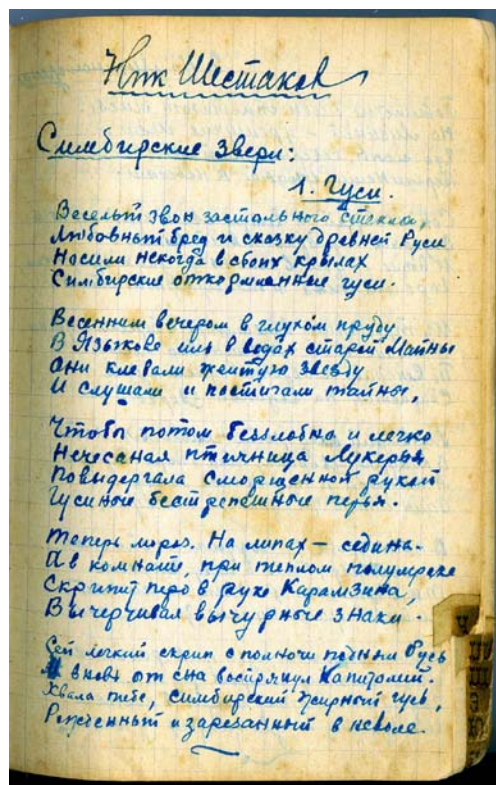 Ник Шестаков
Симбирские звери:
1. Гуси.
Веселый звон застольного стекла,
Любовный бред и сказку древней Руси
Носили некогда в своих крылах
Симбирские откормленные гуси.
Весенним вечером в глухом пруду
В Языкове иль в водах старой Майны
Они клевали желтую звезду
И слушали и постигали тайны,
Чтобы потом беззлобно и легко
Нечесаная птичница Лукерья
Повыдергала сморщенной рукой
Гусиные бестрепетные перья.
Теперь мороз. На липах — седина.
А в комнате, при теплом полумраке
Скрипит перо в руке Карамзина,
Вычерчивая вычурные знаки.
Сей легкий скрип с полночи поднял Русь
И вновь от сна воспрянул Капитолий.
Хвала тебе, симбирский жирный гусь,
Рожденный и зарезанный в неволе.